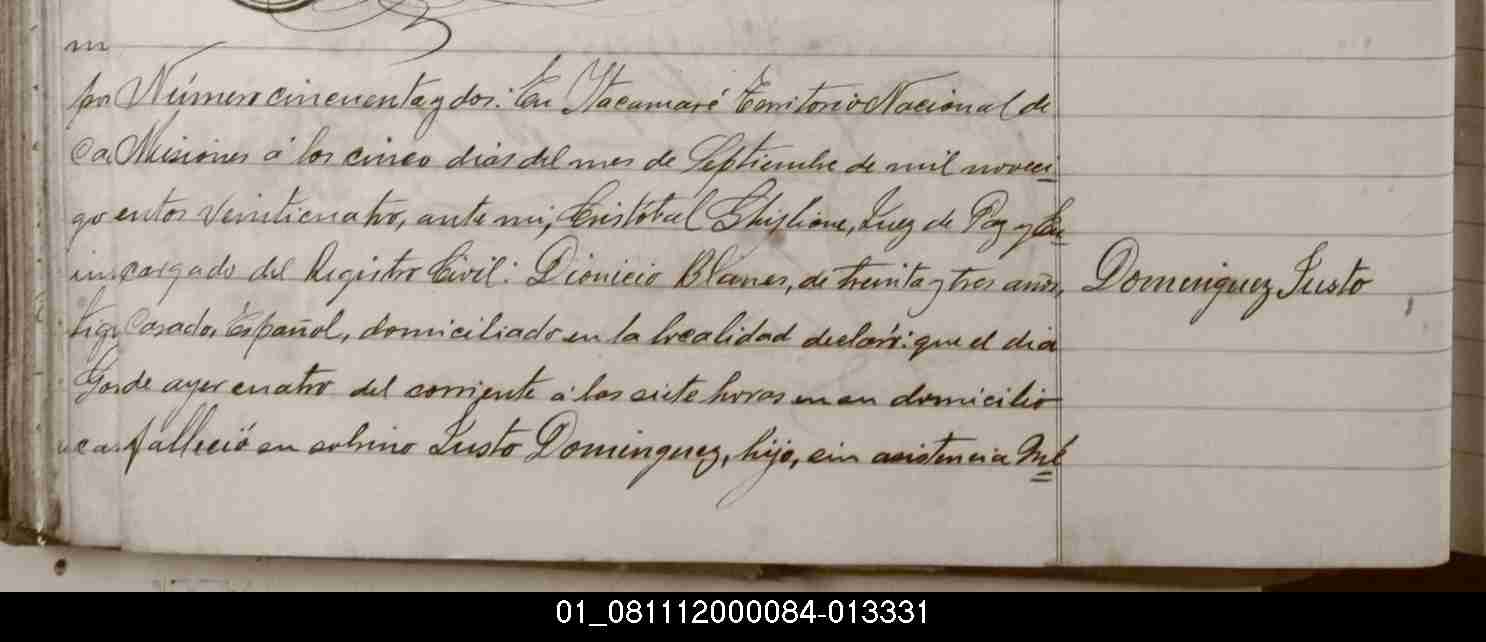 Número cincuenta y dos: En Itacamaré Territorio Nacional de
Misiones á los cinco dias del mes de Septiembre de mil noveci-
entos veinticuatro, ante mi, Cristóbal Ghiglione, Juez de Paz y En-
cargado del Registro Civil: Dionicio Blanes, de treinta y tres años,
Domenguez Justo
Casado, Español, domiciliado en la localidad declaró: que el dia
de ayer cuatro del corriente á las siete horas en su domicilio
falleció su sobrino Justo Dominguez, hijo, sin asistencia Mé
01_081112000084-013331